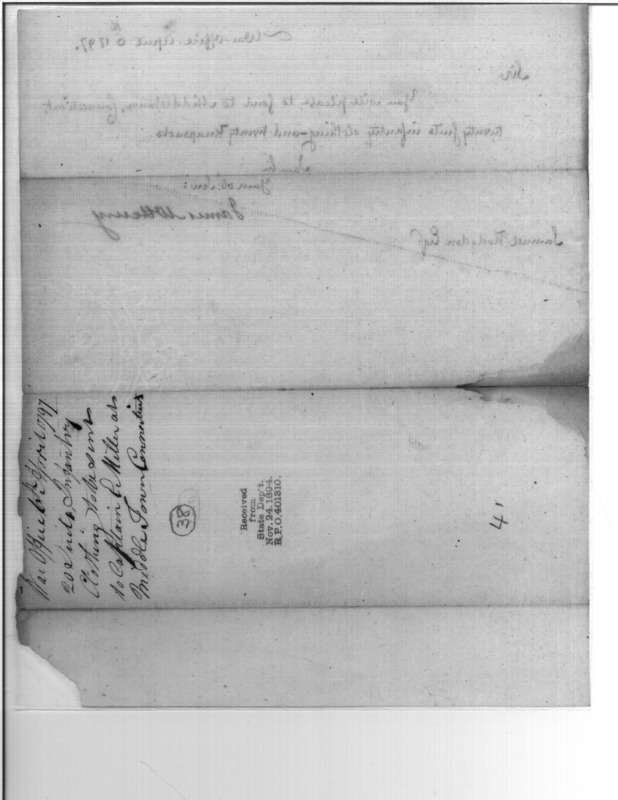 War Office April 6th 1797.
Sir
You will please to send to Middletown, Connecticut,
twenty suits infantry clothing and twenty knapsacks.
I am Sir
Your ob. Serv:
James McHenry
Samuel Hodgdon Esqr
War Office 6th April 1797
20 Suits Infantry
Clothing to be sent
to Captain Miller at
Middle Town Connecticut
38
Received
from
State Dep't.
Nov. 24. 1894.
R.P.O. 401310.
41